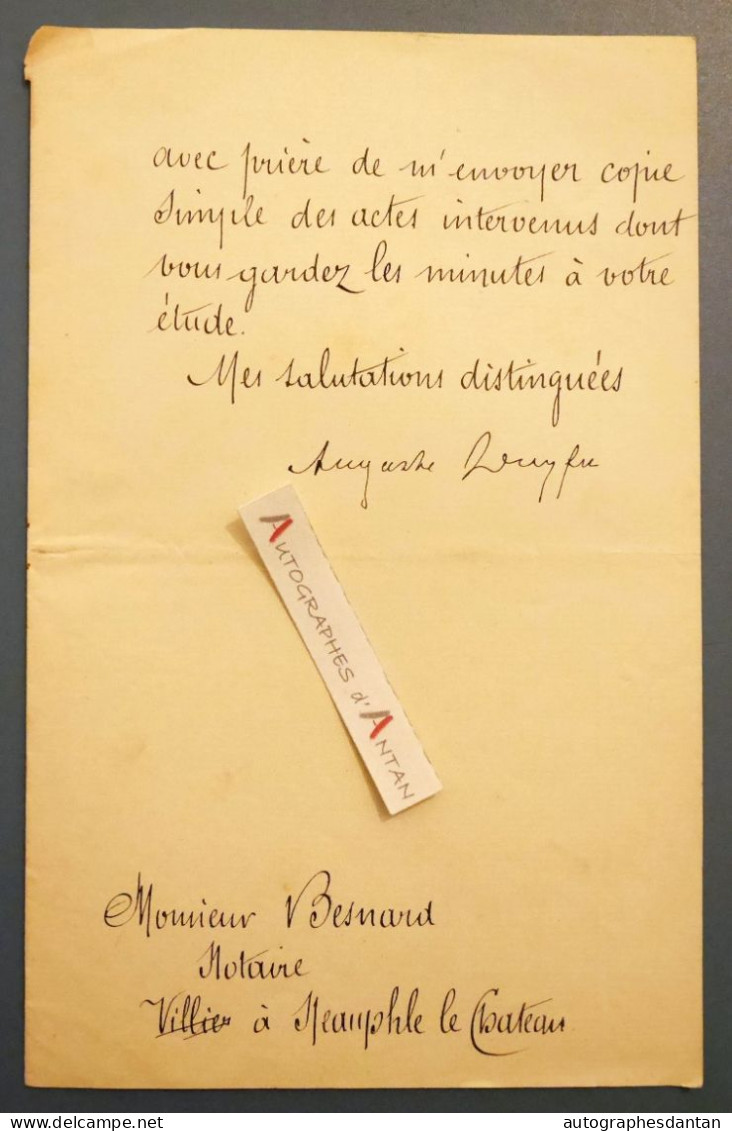 avec prière de m'envoyer copie
simple des actes intervenus dont
vous gardez les minutes à votre
étude.
Mes salutations distinguées
Auguste Dreyfus
AUTOGRAPHES d'ANTAN
Monsieur Besnard
Notaire
Villiers à Neauphle le Chateau
autographesdantan